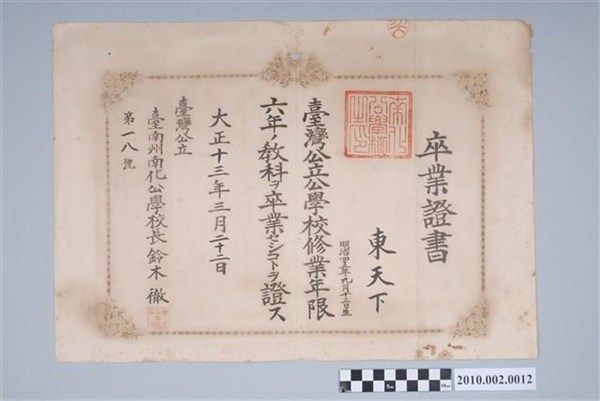 卒業證書
東天下
明治四十五年九月十三日生
臺灣公立公學校修業年限
六年ノ教科ヲ卒業セシコトヲ證ス
大正十三年三月二十二日
臺灣公立
臺南州南化公學校長 鈴木徹
第一八號
2010.002.0012